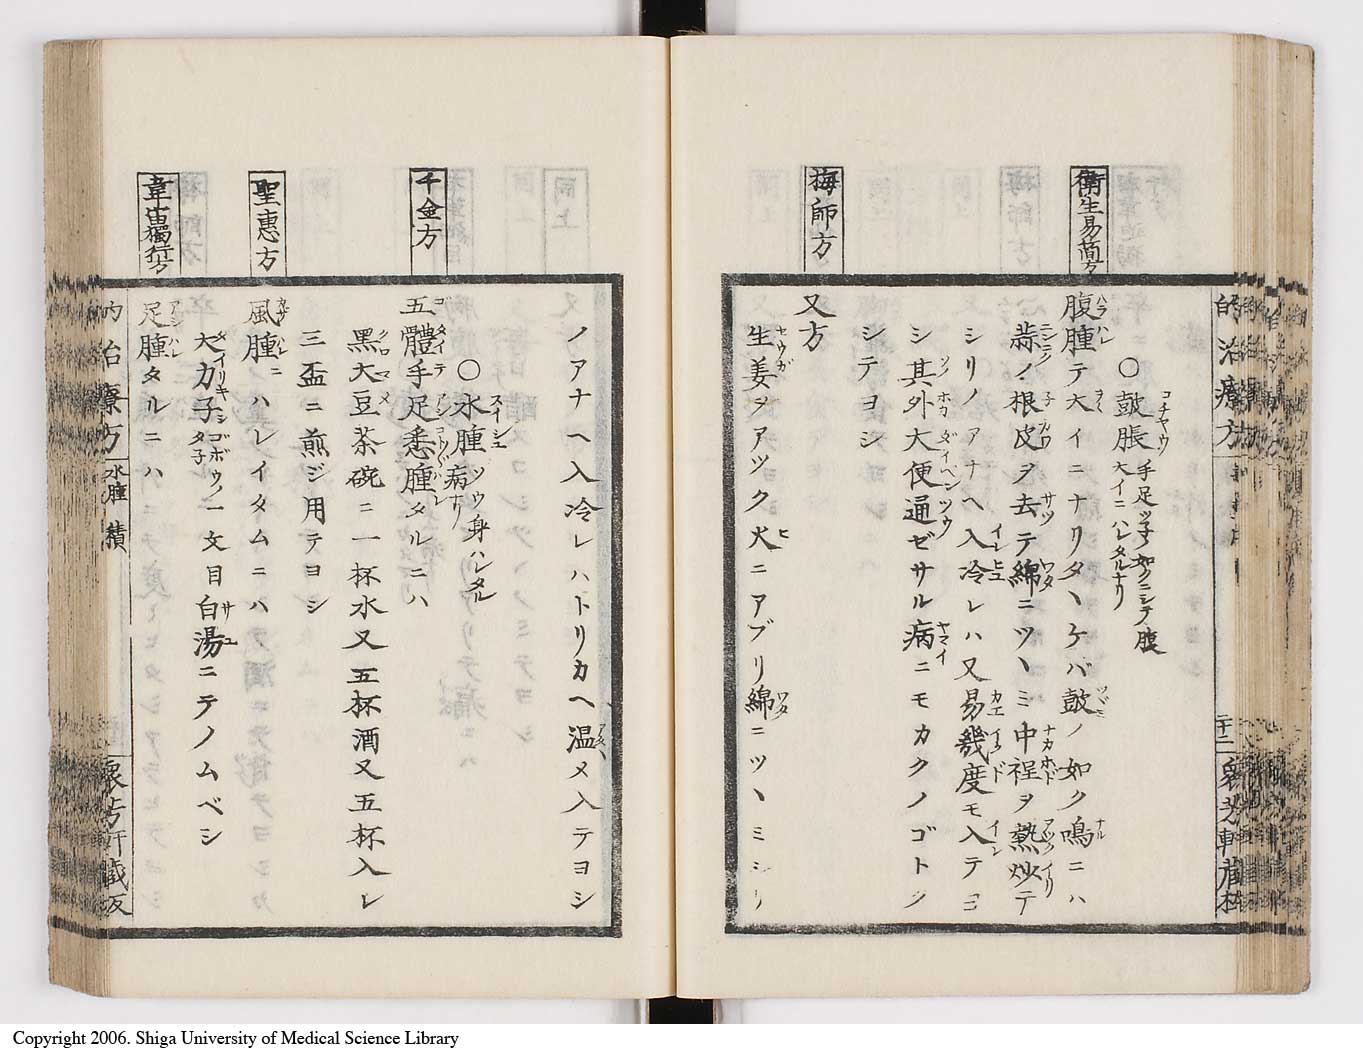 衛生易簡方
○鼓脹 手足ツ子ノ如クニシテ腹大イニハレタルナリ
腹腫テ大イニナリタヽケバ鼓ノ如ク鳴ニハ
蒜ノ根皮ヲ去テ綿ニツヽミ中裎ヲ熱炒テ
シリノアナヘ入冷レハ又易幾度モ入テヨ
シ其外大便通ゼサル病ニモカクノゴトシ
シテヨシ
梅師方
又方
生姜ヲアツク火ニアブリ綿ニツヽミシリ
ノアナヘ入冷レハトリカヘ温メ入テヨシ
○水腫 ツウ身ハレタル病ナリ
千金方
五體手足悉腫タルニハ
黑大豆茶碗ニ一杯水又五杯酒又五杯入レ
三盃ニ煎ジ用テヨシ
聖惠方
風腫ニハレイタムニハ
大力子 ゴボウノタ子 一文目白湯ニテノムベシ
韋宙獨行方
足腫タルニハ
的治療方 水腫
衆芳軒藏板
Copyright 2006. Shiga University of Medical Science Library